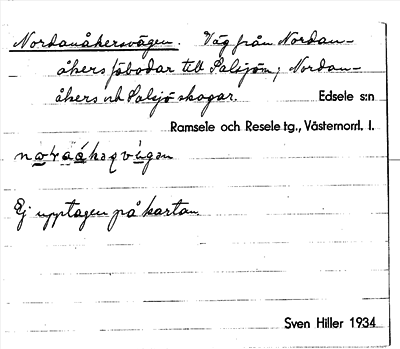 Nordanåkersvägen. Väg från Nordan-
åkers fäbodar till Salsjön; Nordan-
åkers och Salsjö skogar. Edsele s:n
Ramsele och Resele tg., Västernorrl. l.
Ej upptagen på kartan.
Sven Hiller 1934